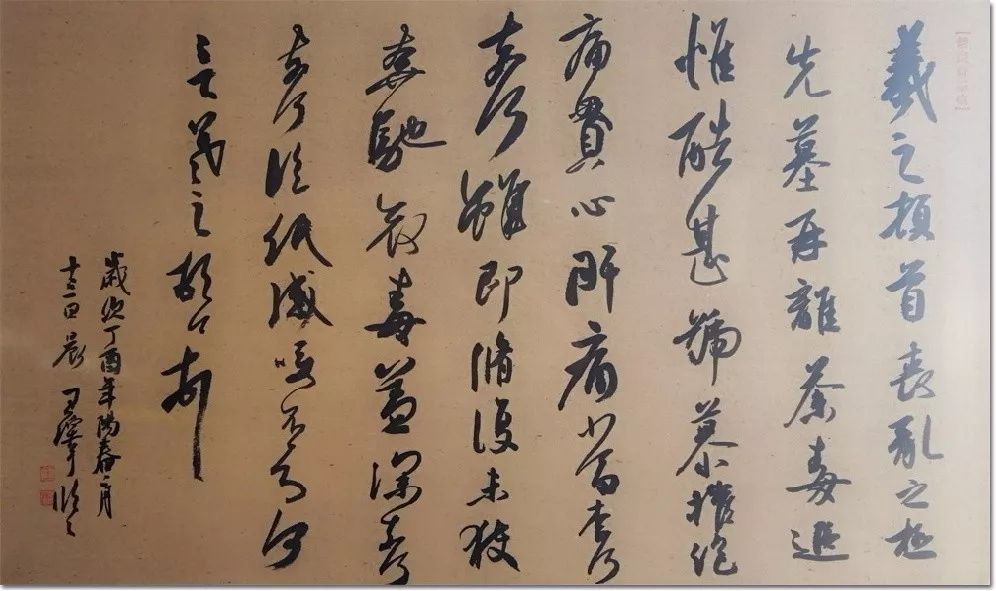 羲之頓首喪亂之極
先墓再離荼毒追
惟酷甚號慕摧絕
痛貫心肝痛當奈何
奈何雖即脩復未獲
奔馳哀毒益深奈何
奈何臨紙感哽不知何
言羲之頓首頓首
歲次丁酉年陽春二月
日晨 臨之